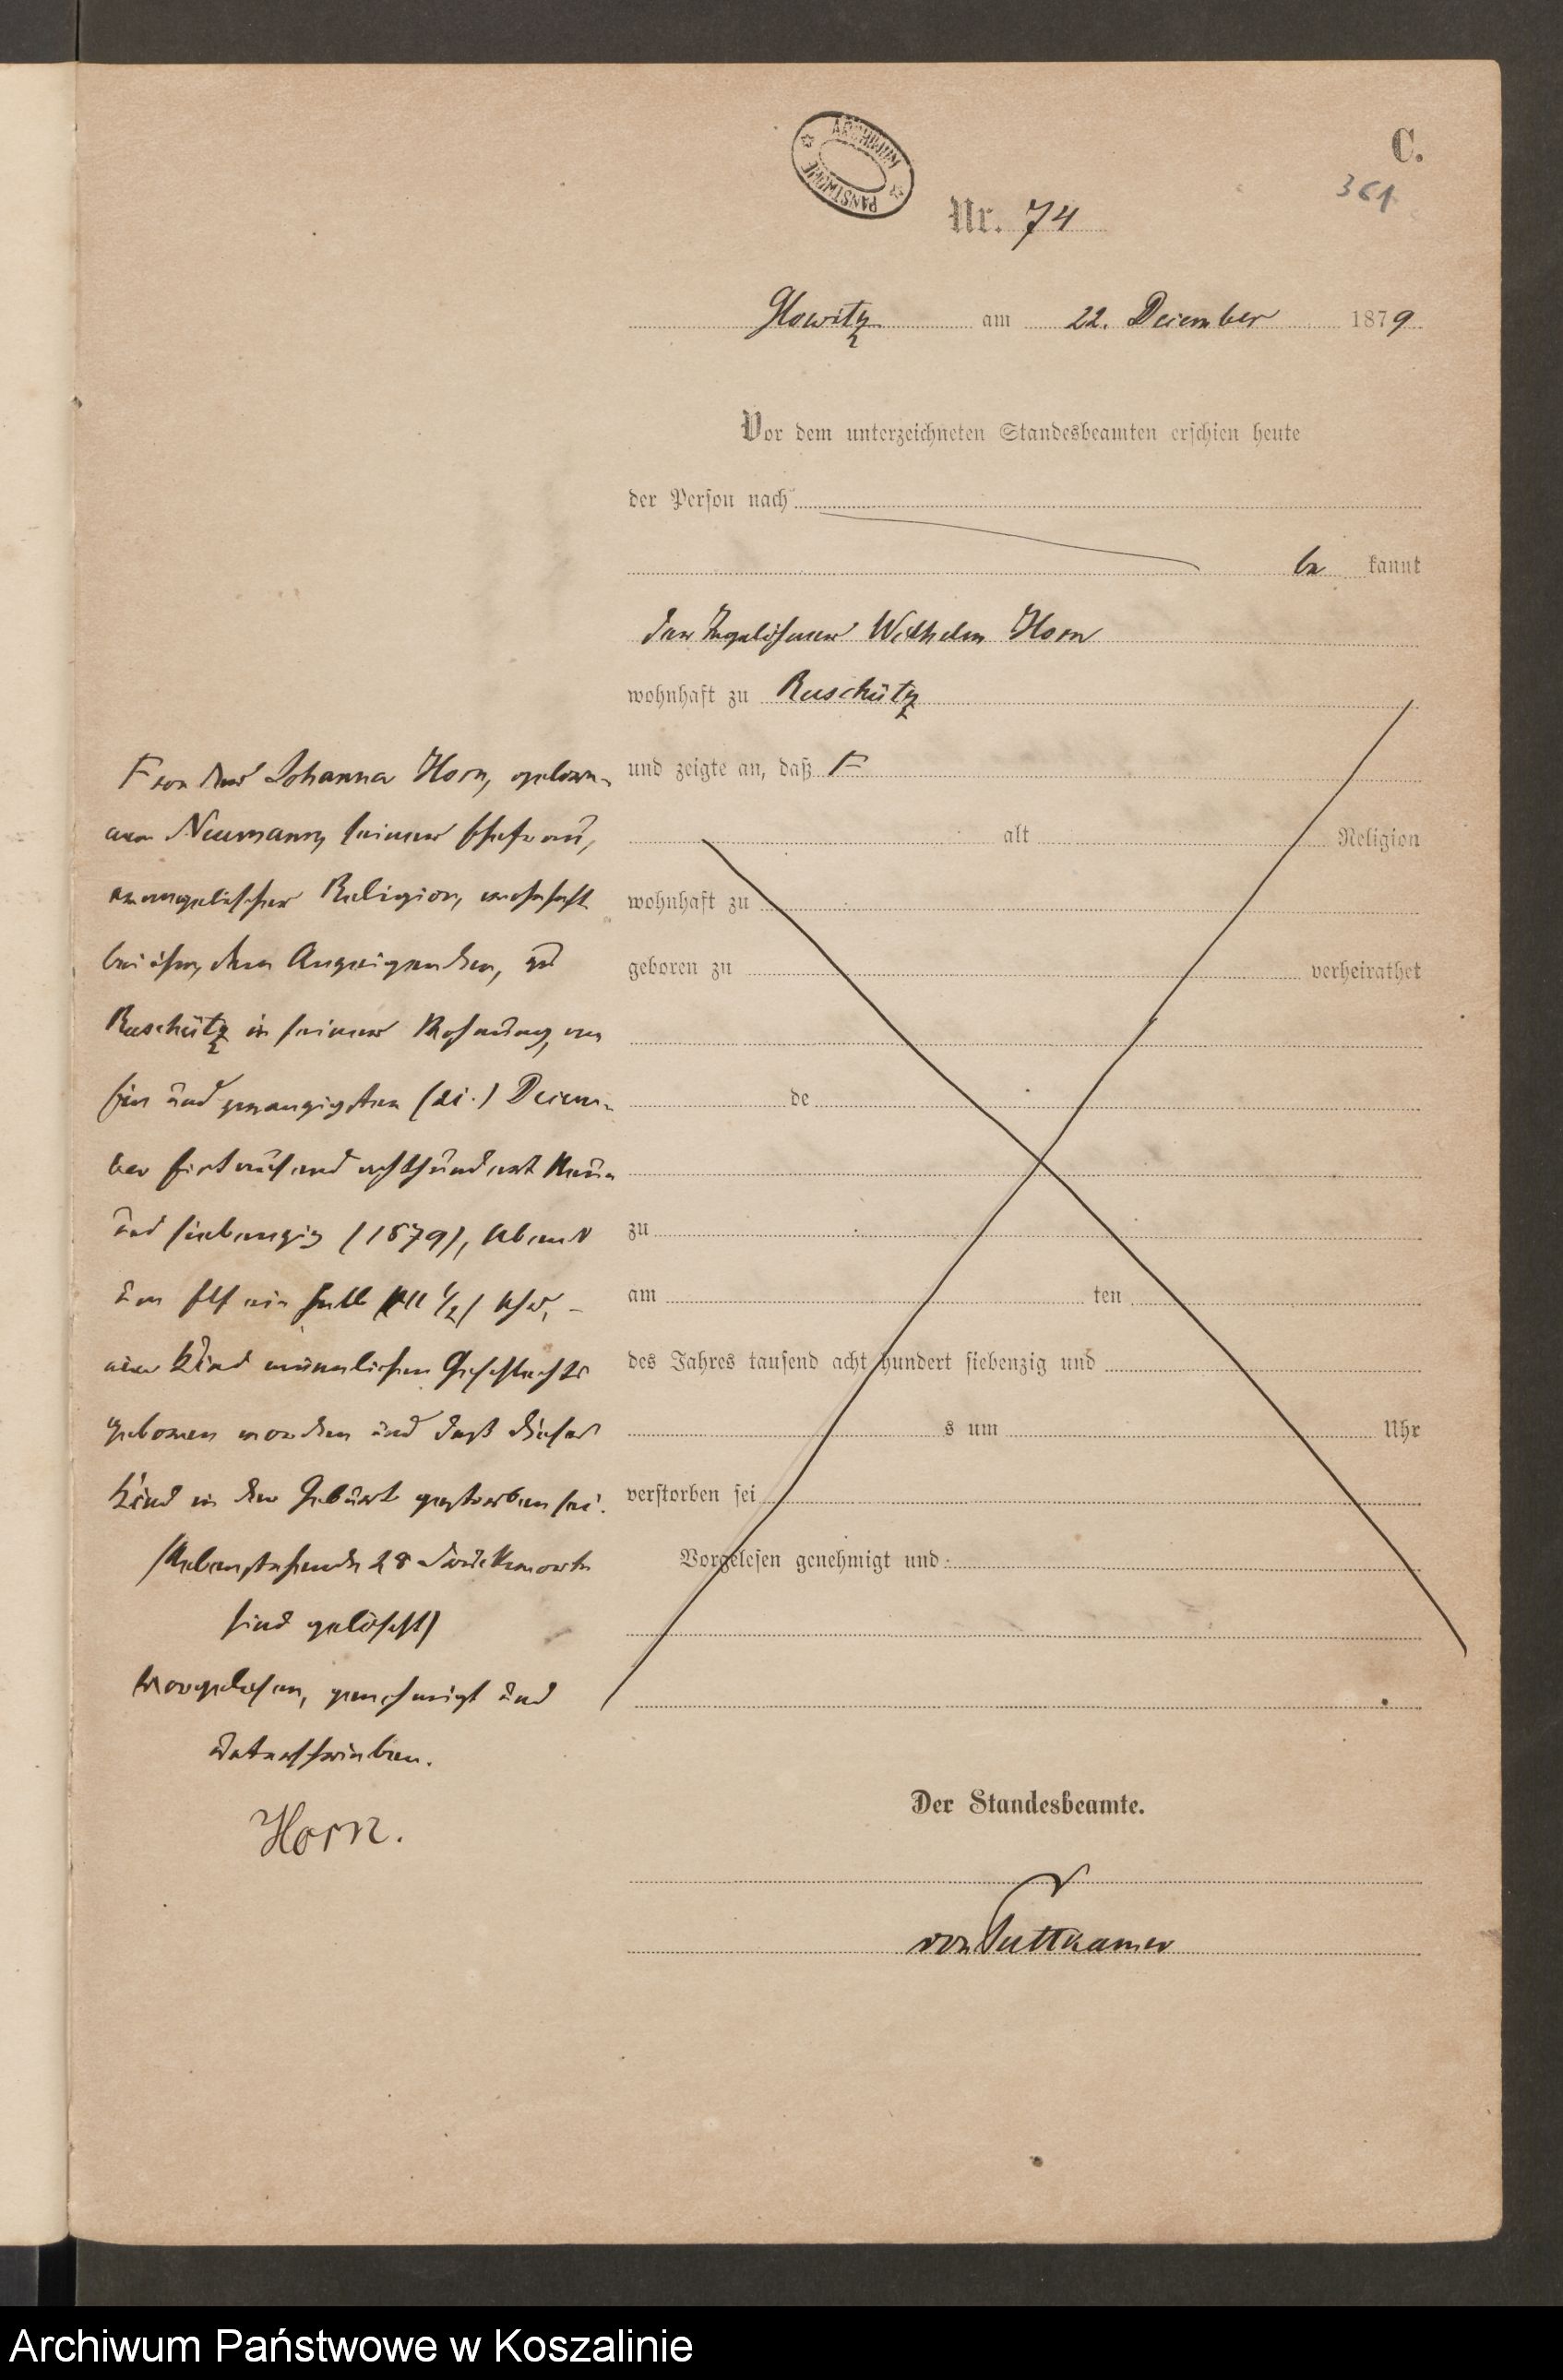 ARCHIWUM PAŃSTWOWE
C.
361
Nr. 74
Glowitz am 22. December 1879
Vor dem unterzeichneten Standesbeamten erschien heute
der Person nach
be kannt
der Tagelöhner Wilhelm Horn
wohnhaft zu Ruschütz
und zeigte an, daß F
alt Religion
wohnhaft zu
geboren zu verheirathet
de
zu
am ten
des Jahres tausend acht hundert siebenzig und
s um Uhr
verstorben sei
Vorgelesen genehmigt und
F von der Johanna Horn, gebore-
nen Neumann, seiner Ehefrau,
evangelischer Religion, wohnhaft
bei ihm, dem Anzeigenden, zu
Ruschütz in seiner Wohnung, am
ein und zwanzigsten (21.) Decem-
ber eintausend achthundert neun
und siebenzig (1879), Abends
um elf ein halb (11 1/2) Uhr, -
ein Kind männlichen Geschlechts
geboren worden und daß dieses
Kind in der Geburt gestorben sei.
(Nebenstehende 28 Druckworte
sind gelöscht)
Vorgelesen, genehmigt und
unterschrieben.
Horn.
Der Standesbeamte.
von Puttkamer
Archiwum Państwowe w Koszalinie